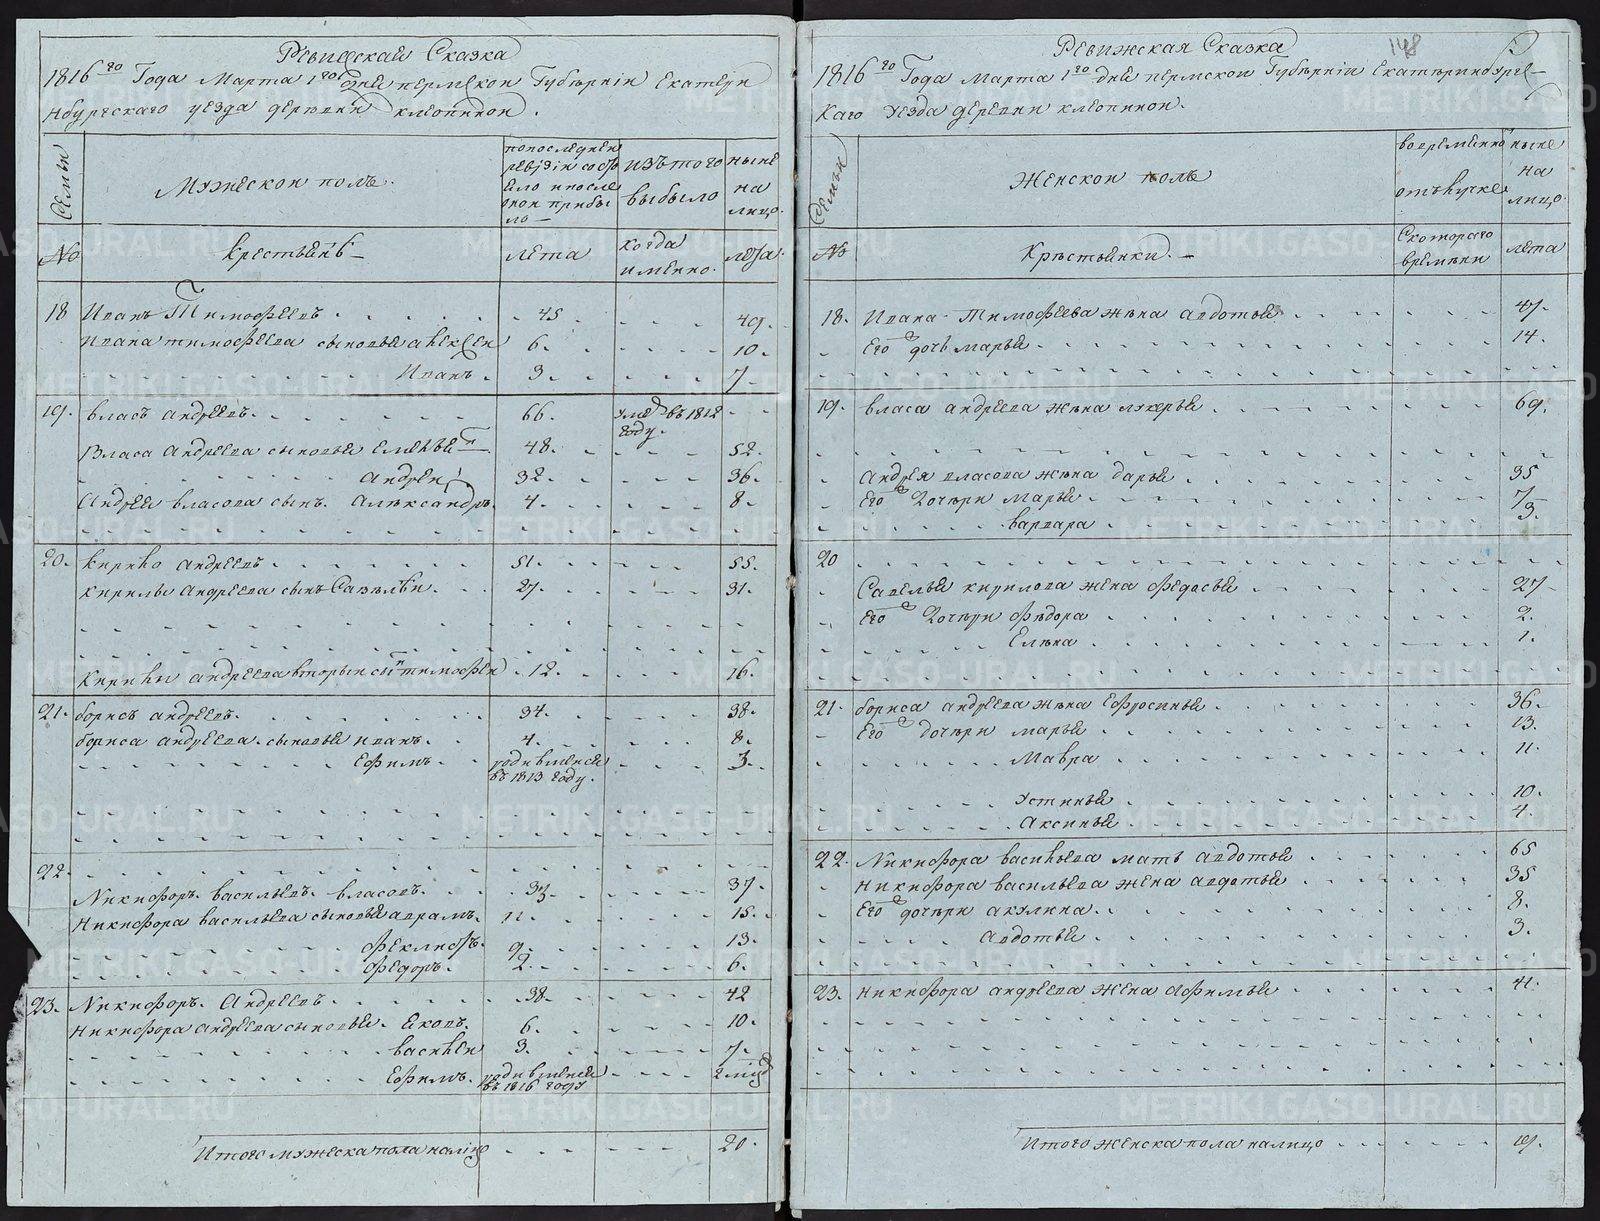 Ревижская Сказка
1816го Года Марта 1го дне пермскои Губѣрнiи Екатери
нбургскаго уезда деревни клеопинои.
Семьи
Мужескои полъ.
попоследнеи ревiзiи состоѧло ипосле онои прибыло
изътого выбыло
ныне на лицо
No
крестьянѣ
лета
когда имѣнно.
лета
18 Иванъ Тимофеевъ 45 49.
Ивана тимофеева сыновья алексеи 6. 10.
Иванъ. 3. 7
19. власъ андреевъ. 66. умѣ въ 1812 году.
Власа андреева сыновья емельян 48. 52.
андреи 32. 36.
андрея власова сынъ. алѣксандръ. 4. 8.
20. кирило андреевъ. 51. 55.
кирилы андреева сынъ Савѣлѣи. 27. 31.
кирилы андреева вторыи сынъ тимофеи 12. 16.
21. борисъ андреевъ. 34. 38.
бориса андреева. сыновья иванъ. 4. 8.
Ефимъ. родившеися въ 1813 году. 3.
22.
Никифоръ васильевъ. власовъ. 33. 37.
Никифора васильева сыновья аврамъ. 11. 15.
феклистъ. 9. 13.
федоръ. 2. 6.
23. Никифоръ. Андреевъ. 38. 42
Никифора андреева сыновья. яковъ. 6. 10.
василеи 3. 7.
Ефимъ. родившеися въ 1816 году 2 мѣц
Итого мужеска пола налицо 20.
148
Ревижская Сказка
1816го Года Марта 1го дне пермскои Губѣрнiи Екатѣринбургс-
каго уезда деревни клеопинои.
Семьи
Женскои полъ
вовременнои отълучке
ныне на лицо
No
Крѣстьянки.
Скотораго врѣмѣни
лета
18. Ивана Тимофеева жѣна авдотья 47.
Его дочь марья. 14.
19. власа андреева жѣна лукерья 69.
андрея власова жѣна дарья 35
Его дочѣри марья 7
варвара 3.
20
Савелья кирилова жена федосья 27
Его дочѣри фѣдора 2.
Елѣна 1.
21. бориса андреева жѣна Ефросинья 36.
Его дочѣри марья 13.
Мавра 11.
устинья 10.
аксинья 4.
22. Никифора васильева мать авдотья 65
никифора васильева жена авдотья 35
Его дочѣри акулина. 8.
авдотья 3.
23. никифора андреева жена афимья 41.
Итого женска пола налицо 19.
METRIKI.GASO-URAL.RU